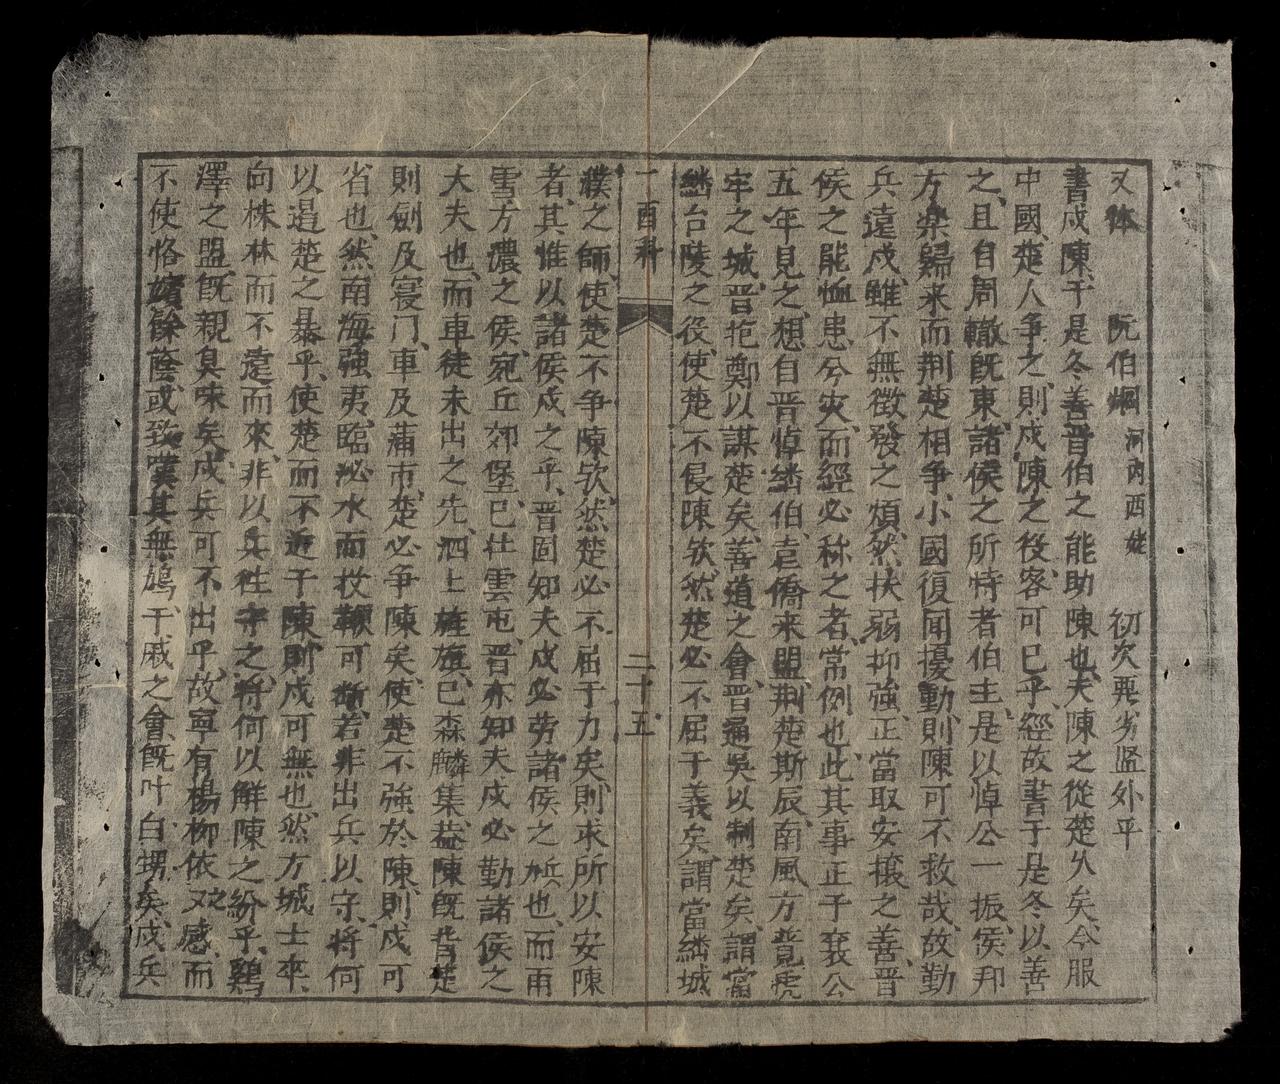 又体 阮伯烱 河內西姥 初次再劣監外平
書戍陳于是冬善晋伯之能助陳也夫陳之從楚久矣今服
中國楚人爭之則戍陳之役容可已乎經故書于是冬以善
之且自周轍旣東諸侯之所恃者伯主是以悼公一振侯邦
方楽歸来而荆楚相爭小國復聞擾動則陳可不救哉故勤
兵遠戍雖不無徴發之煩然扶弱抑強正當取安攘之善晋
侯之能恤患分灾而經必称之者常例也此其事正于襄公
五年見之想自晋悼纉伯袁僑来盟荆楚斯辰南風方競虎
牢之城晋扼鄭以謀楚矣善道之會晋通吳以制楚矣謂當
纉台陵之役使楚不侵陳欤然楚必不屈于義矣謂當纉城
一酉科 二十五
濮之師使楚不爭陳欤然楚必不屈于力矣則求所以安陳
者其惟以諸侯戍之乎晋固知夫戍必劳諸侯之兵也而雨
雪方濃之候宛丘郊堡已壯雲屯晋亦知夫戍必勤諸侯之
大夫也而車徒未出之先泗上旌旗已森麟集盖陳旣背楚
則劍及寝门車及蒲市楚必爭陳矣使楚不強於陳則戍可
省也然南海強夷臨泌水而投鞭可断若非出兵以守將何
以遏楚之暴乎使楚而不近于陳則戍可無也然方城士卒
向株林而不遠而來非以兵徃守之將何以觧陳之紛乎鷄
澤之盟旣親臭味矣戍兵可不出乎故寕有楊柳依之又感而
不使恪諸餘蔭或致嘆其無鳩于戚之會旣叶白甥矣戍兵